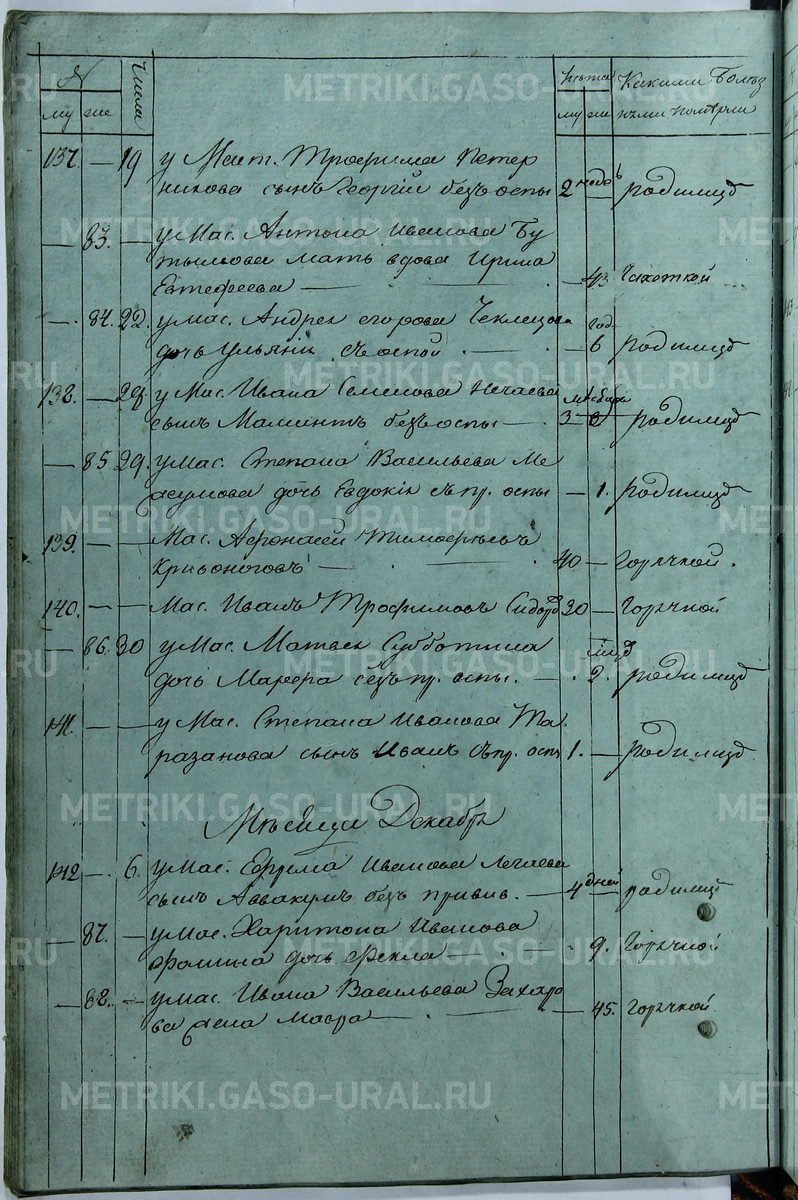 № Числа Лѣта Какими болѣз
му же му же нями померли
137. — 19 у Маст. Трофима Петер
никова сынъ Георгій безъ оспы 2 недѣ родимцѣ
— 83. — у Мас. Антона Иванова Бу
тылова мать вдова Ирина
Евтефеева — 43 Чахоткой
— 84. 22. у мас. Андрея Егорова год
дочь Ульянія съ оспой — 6 родимцѣ
138. — 28 у Мас. Ивана Семенова Нечаева
сынъ безъ оспы — 3 родимцѣ
— 85 29. у мас. Степана Васильева Ме
дочь Евдокія съ пр. оспы — 1. родимцѣ
139. — — Мас. Афонасей Тимофѣевъ
Кривоноговъ — 40 — Горячкой.
140. — — Мас. Иванъ Трофимовъ 30 — Горячкой
— 86. 30 у Мас. Матвея Субботина
дочь Марфа безъ пр. оспы. — 2. родимцѣ
141. — — у Мас. Степана Иванова Та
разанова сынъ Иванъ съ пр. оспы 1. — родимцѣ
Мѣсяца Декабрь
142 — 6. у мас. Ефрема Иванова
сынъ Аввакумъ безъ привив. — 4 дней родимцѣ
— 87. — у мас. Харитона Иванова
Фомина дочь Фекла — 9. Горячкой
— 88. — у мас. Ивана Васильева Захаро
ва жена Мавра — 45. Горячкой
METRIKI.GASO-URAL.RU